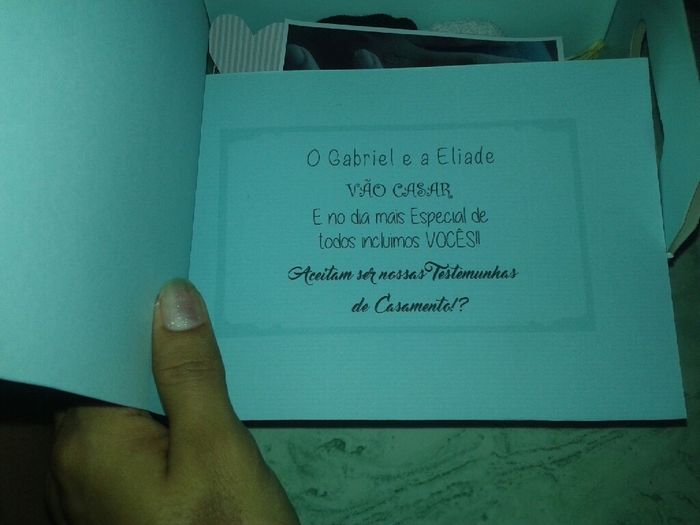 O Gabriel e a Eliade
VÃO CASAR
E no dia mais Especial de
todos incluimos VOCÊS!!
Aceitam ser nossas Testemunhas
de Casamento!?